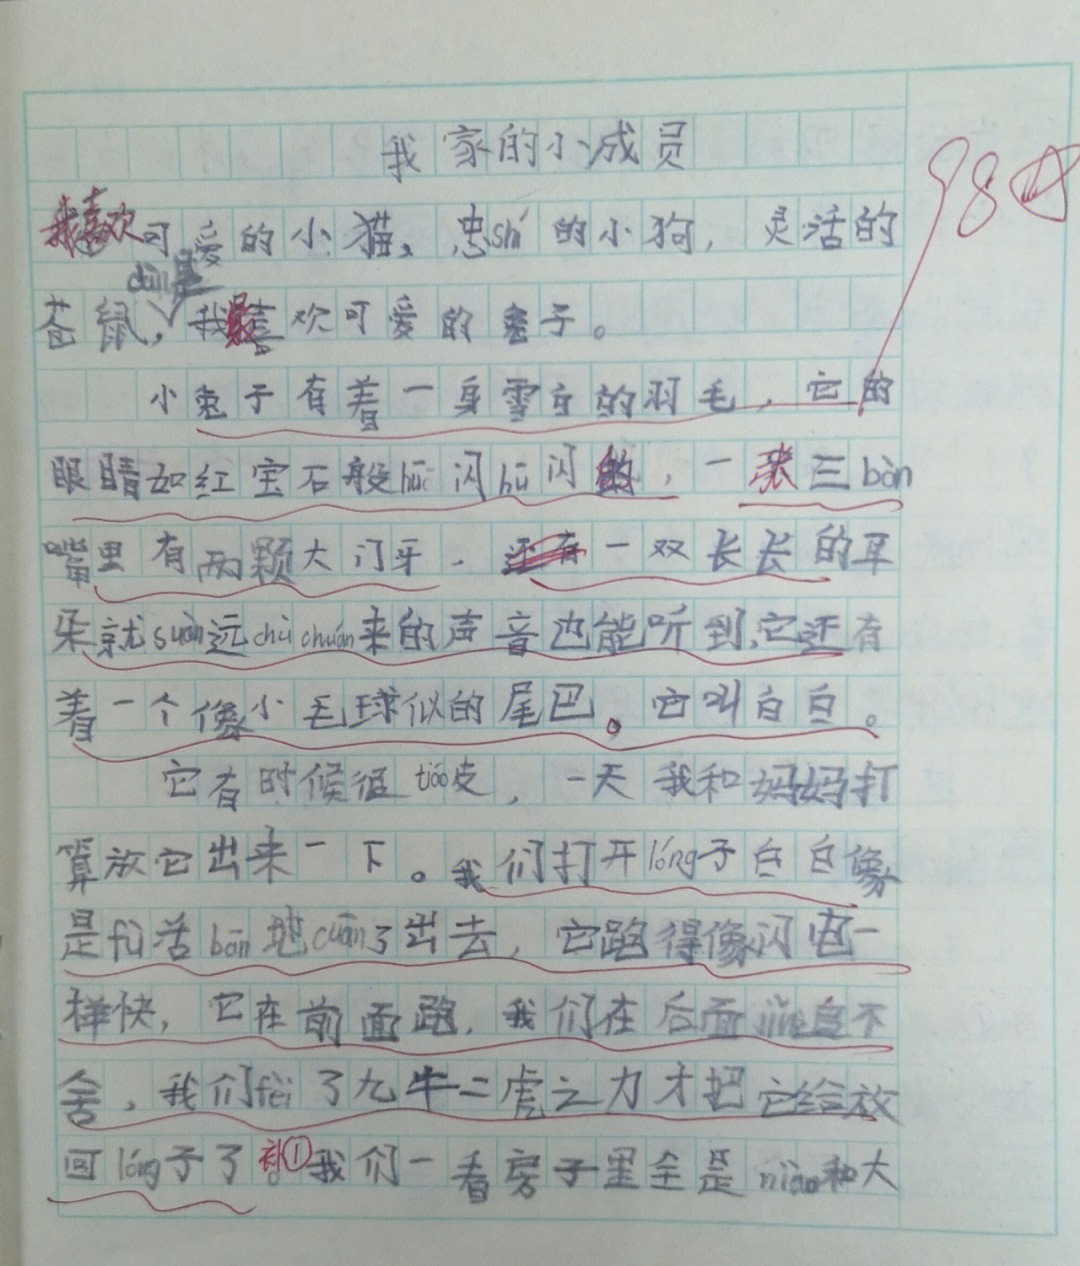 我家的小成员
98
我喜欢可爱的小猫、忠shí的小狗，灵活的
dàn是
苍鼠，我最喜欢可爱的兔子。
小兔子有着一身雪白的羽毛，它的
眼睛如红宝石般hū闪hū闪的，一张三bàn
嘴里有两颗大门牙．还有一双长长的耳
朵就suàn远chù chuán来的声音也能听到，它还有
着一个像小毛球似的尾巴。它叫白白。
它有时候很tiáo皮，一天我和妈妈打
算放它出来一下。我们打开lóng子白白像
是fù活bān地cuān了出去，它跑得像闪电一
样快，它在前面跑．我们在后面追不
舍，我们fèi了九牛二虎之力才把它给放
回lóng子了①我们一看房子里全是niào和大